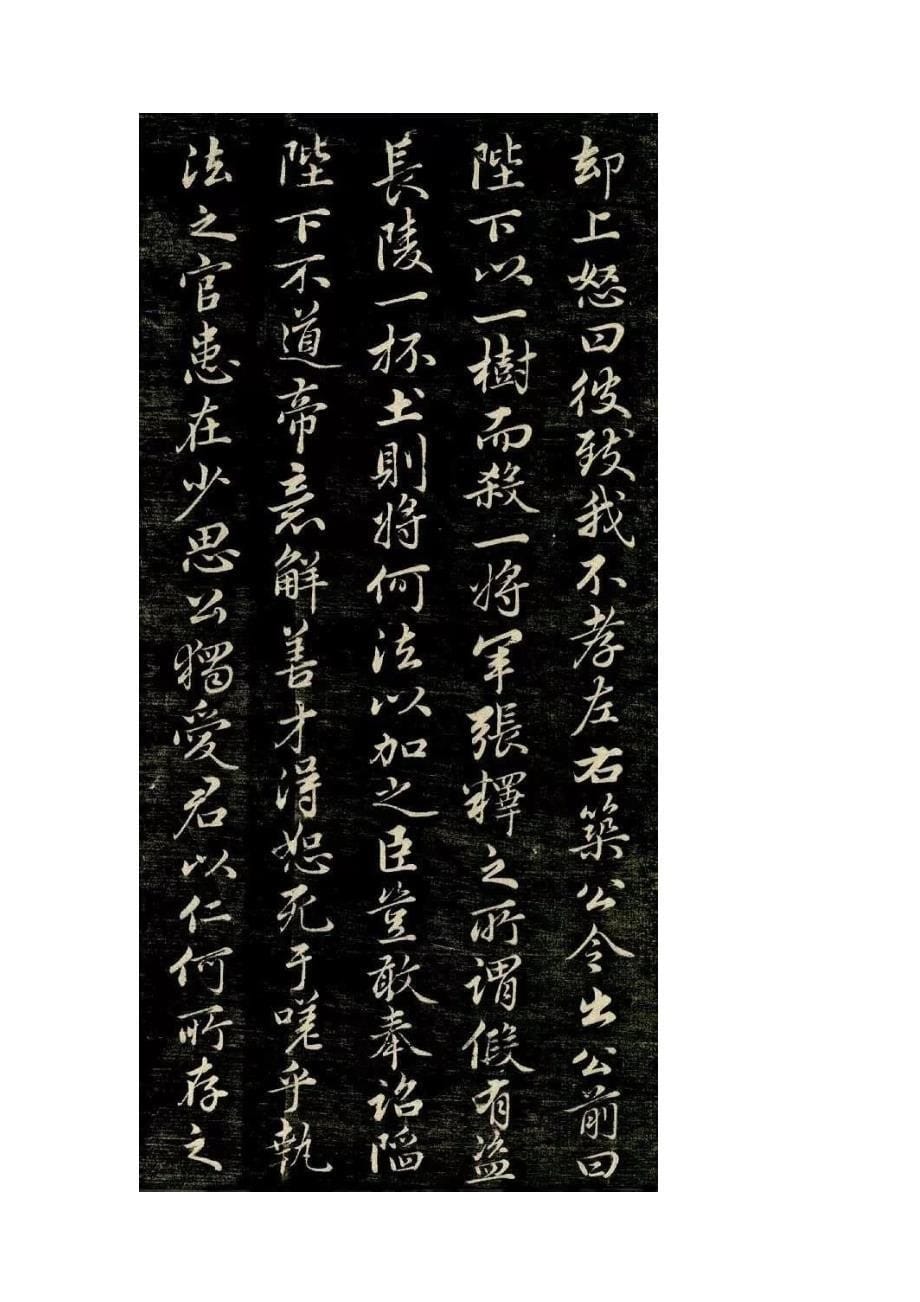 却上怒曰彼致我不孝左右築公令出公前曰
陛下以一樹而殺一将軍張釋之所謂假有盗
長陵一抔土則将何法以加之臣豈敢奉詔陷
陛下不道帝意解善才得恕死于嗟乎執
法之官患在少恩公獨愛君以仁何所存之